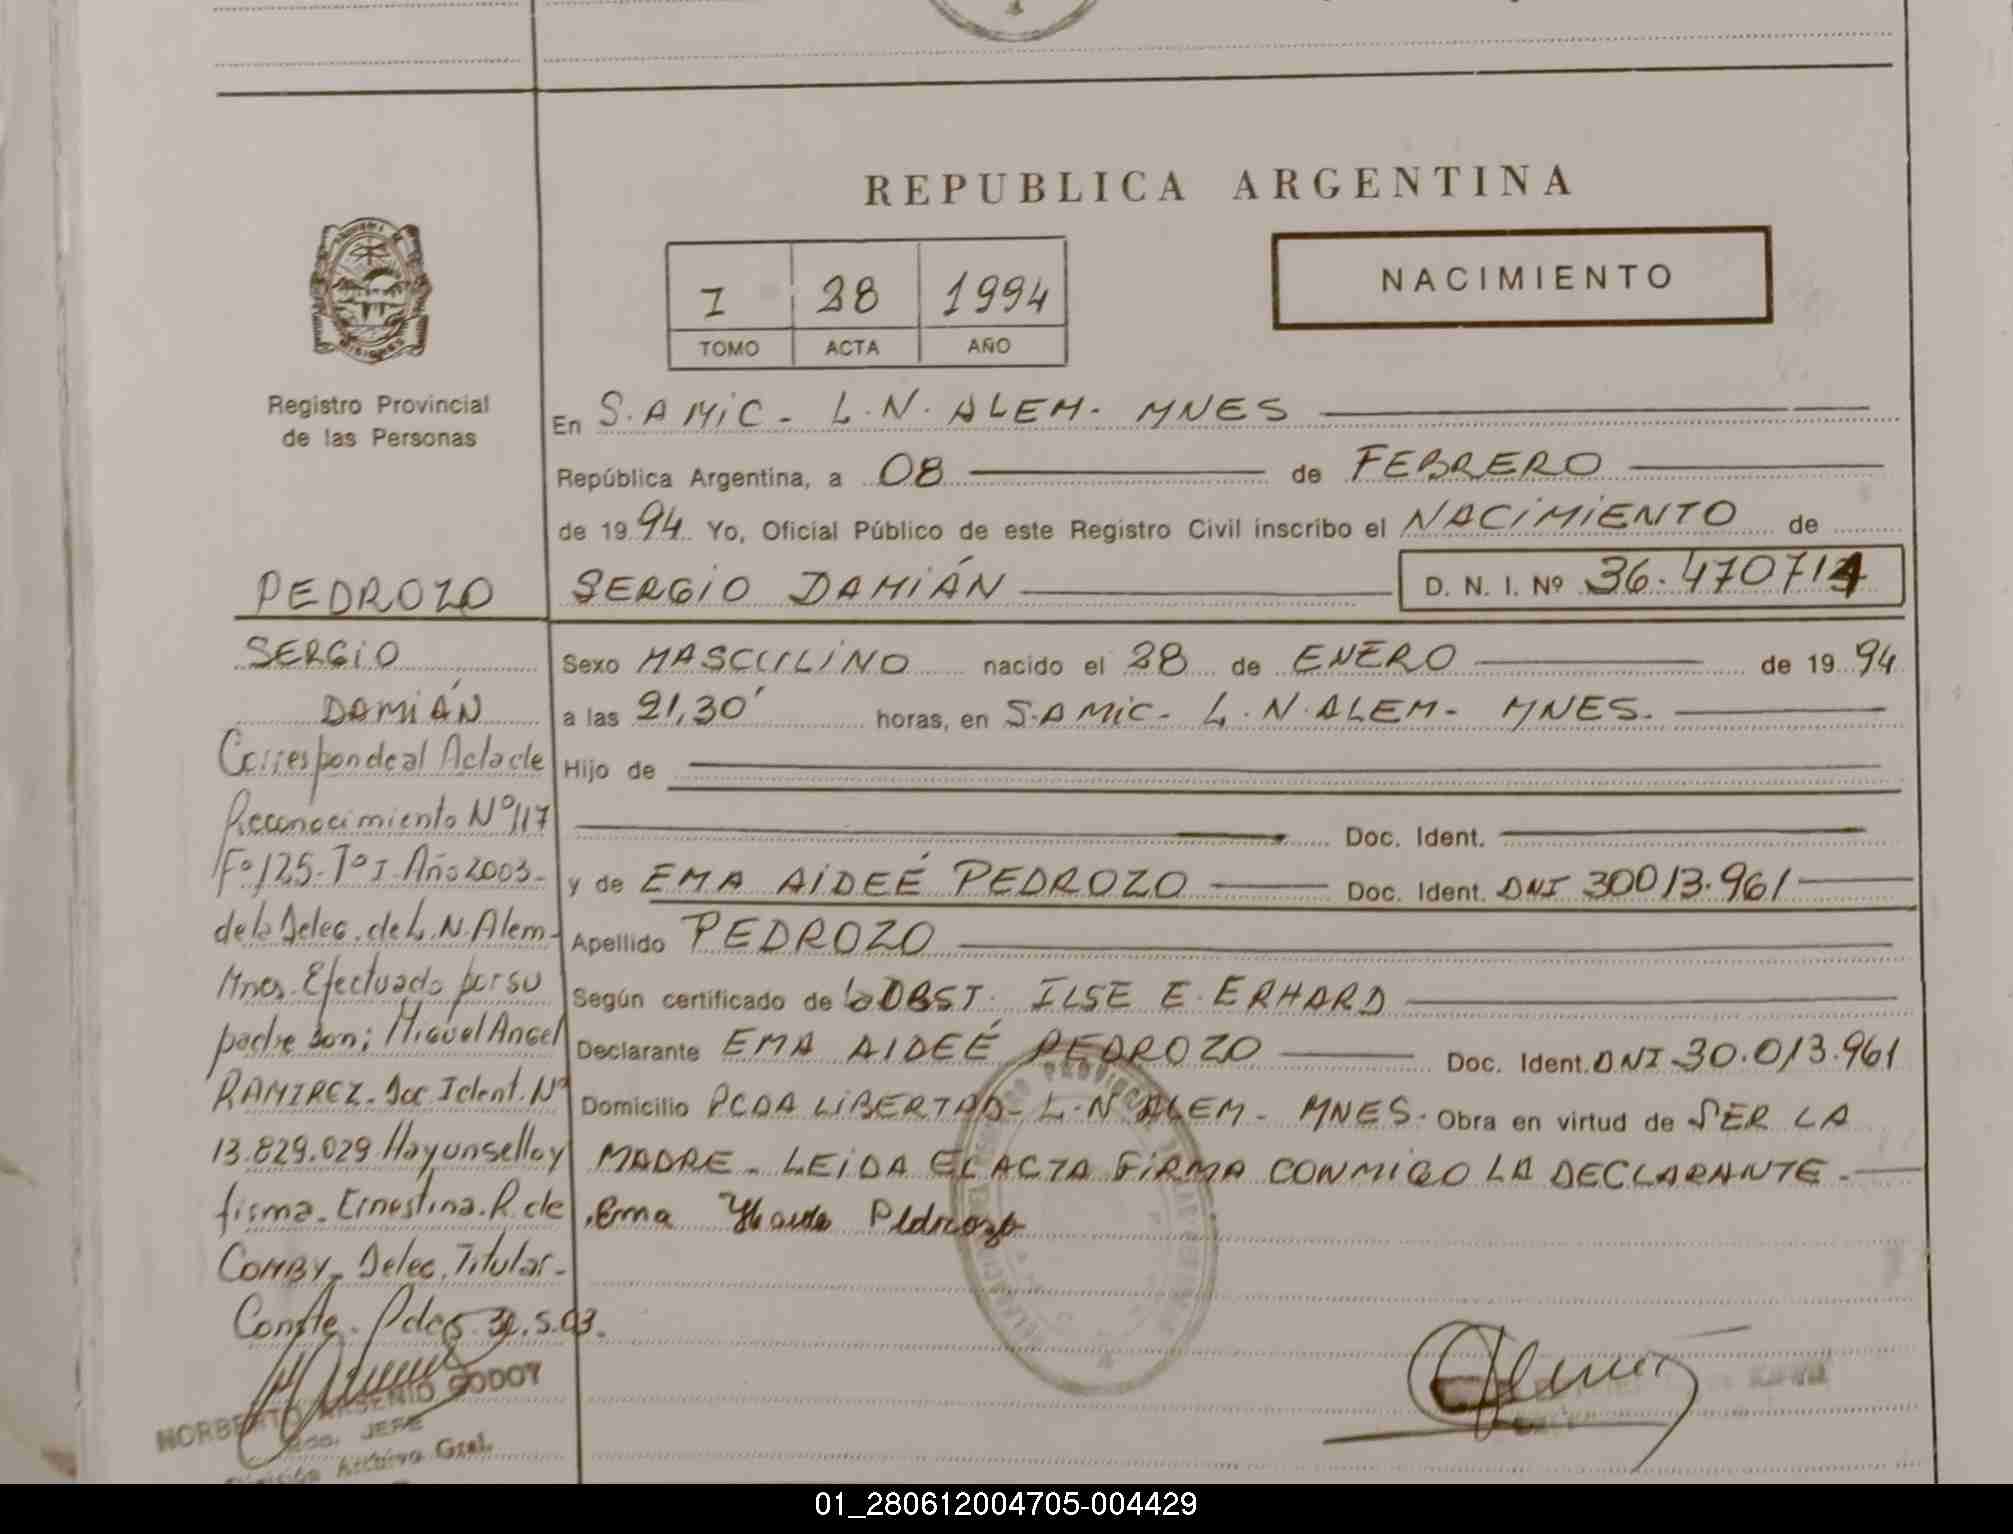 REPUBLICA ARGENTINA
NACIMIENTO
I 28 1994
TOMO ACTA AÑO
MISIONES
Registro Provincial
de las Personas
En S. AMIC - L. N. ALEM - MNES
República Argentina, a 08 de FEBRERO
de 1994 Yo, Oficial Público de este Registro Civil inscribo el NACIMIENTO de
SERGIO DAMIÁN D. N. I. Nº 36.470714
Sexo MASCULINO nacido el 28 de ENERO de 1994
a las 21,30' horas, en S. AMIC - L. N. ALEM - MNES.
Hijo de
Doc. Ident.
y de EMA AIDEÉ PEDROZO Doc. Ident. DNI 30013.961
Apellido PEDROZO
Según certificado de la OBST. ILSE E. ERHARD
Declarante EMA AIDEÉ PEDROZO Doc. Ident. DNI 30.013.961
Domicilio PCDA LIBERTAD - L. N. ALEM - MNES. Obra en virtud de SER LA
MADRE - LEIDA EL ACTA FIRMA CONMIGO LA DECLARANTE -
Ema Pedrozo
PEDROZO
SERGIO
DAMIÁN
Corresponde al Acta de
Reconocimiento Nº 117
Fº 125 - Tº I - Año 2003 -
de la Deleg. de L. N. Alem -
Mnes. Efectuado por su
padre Don; Miguel Angel
RAMIREZ - Doc Ident. Nº
13.829.029 Hay un sello y
firma - Ernestina. R. de
COMBY - Deleg. Titular -
Conste - Pdas 30.5.03.
NORBERTO ARSENIO GODOY
JEFE
División Archivo Gral.
01_280612004705-004429